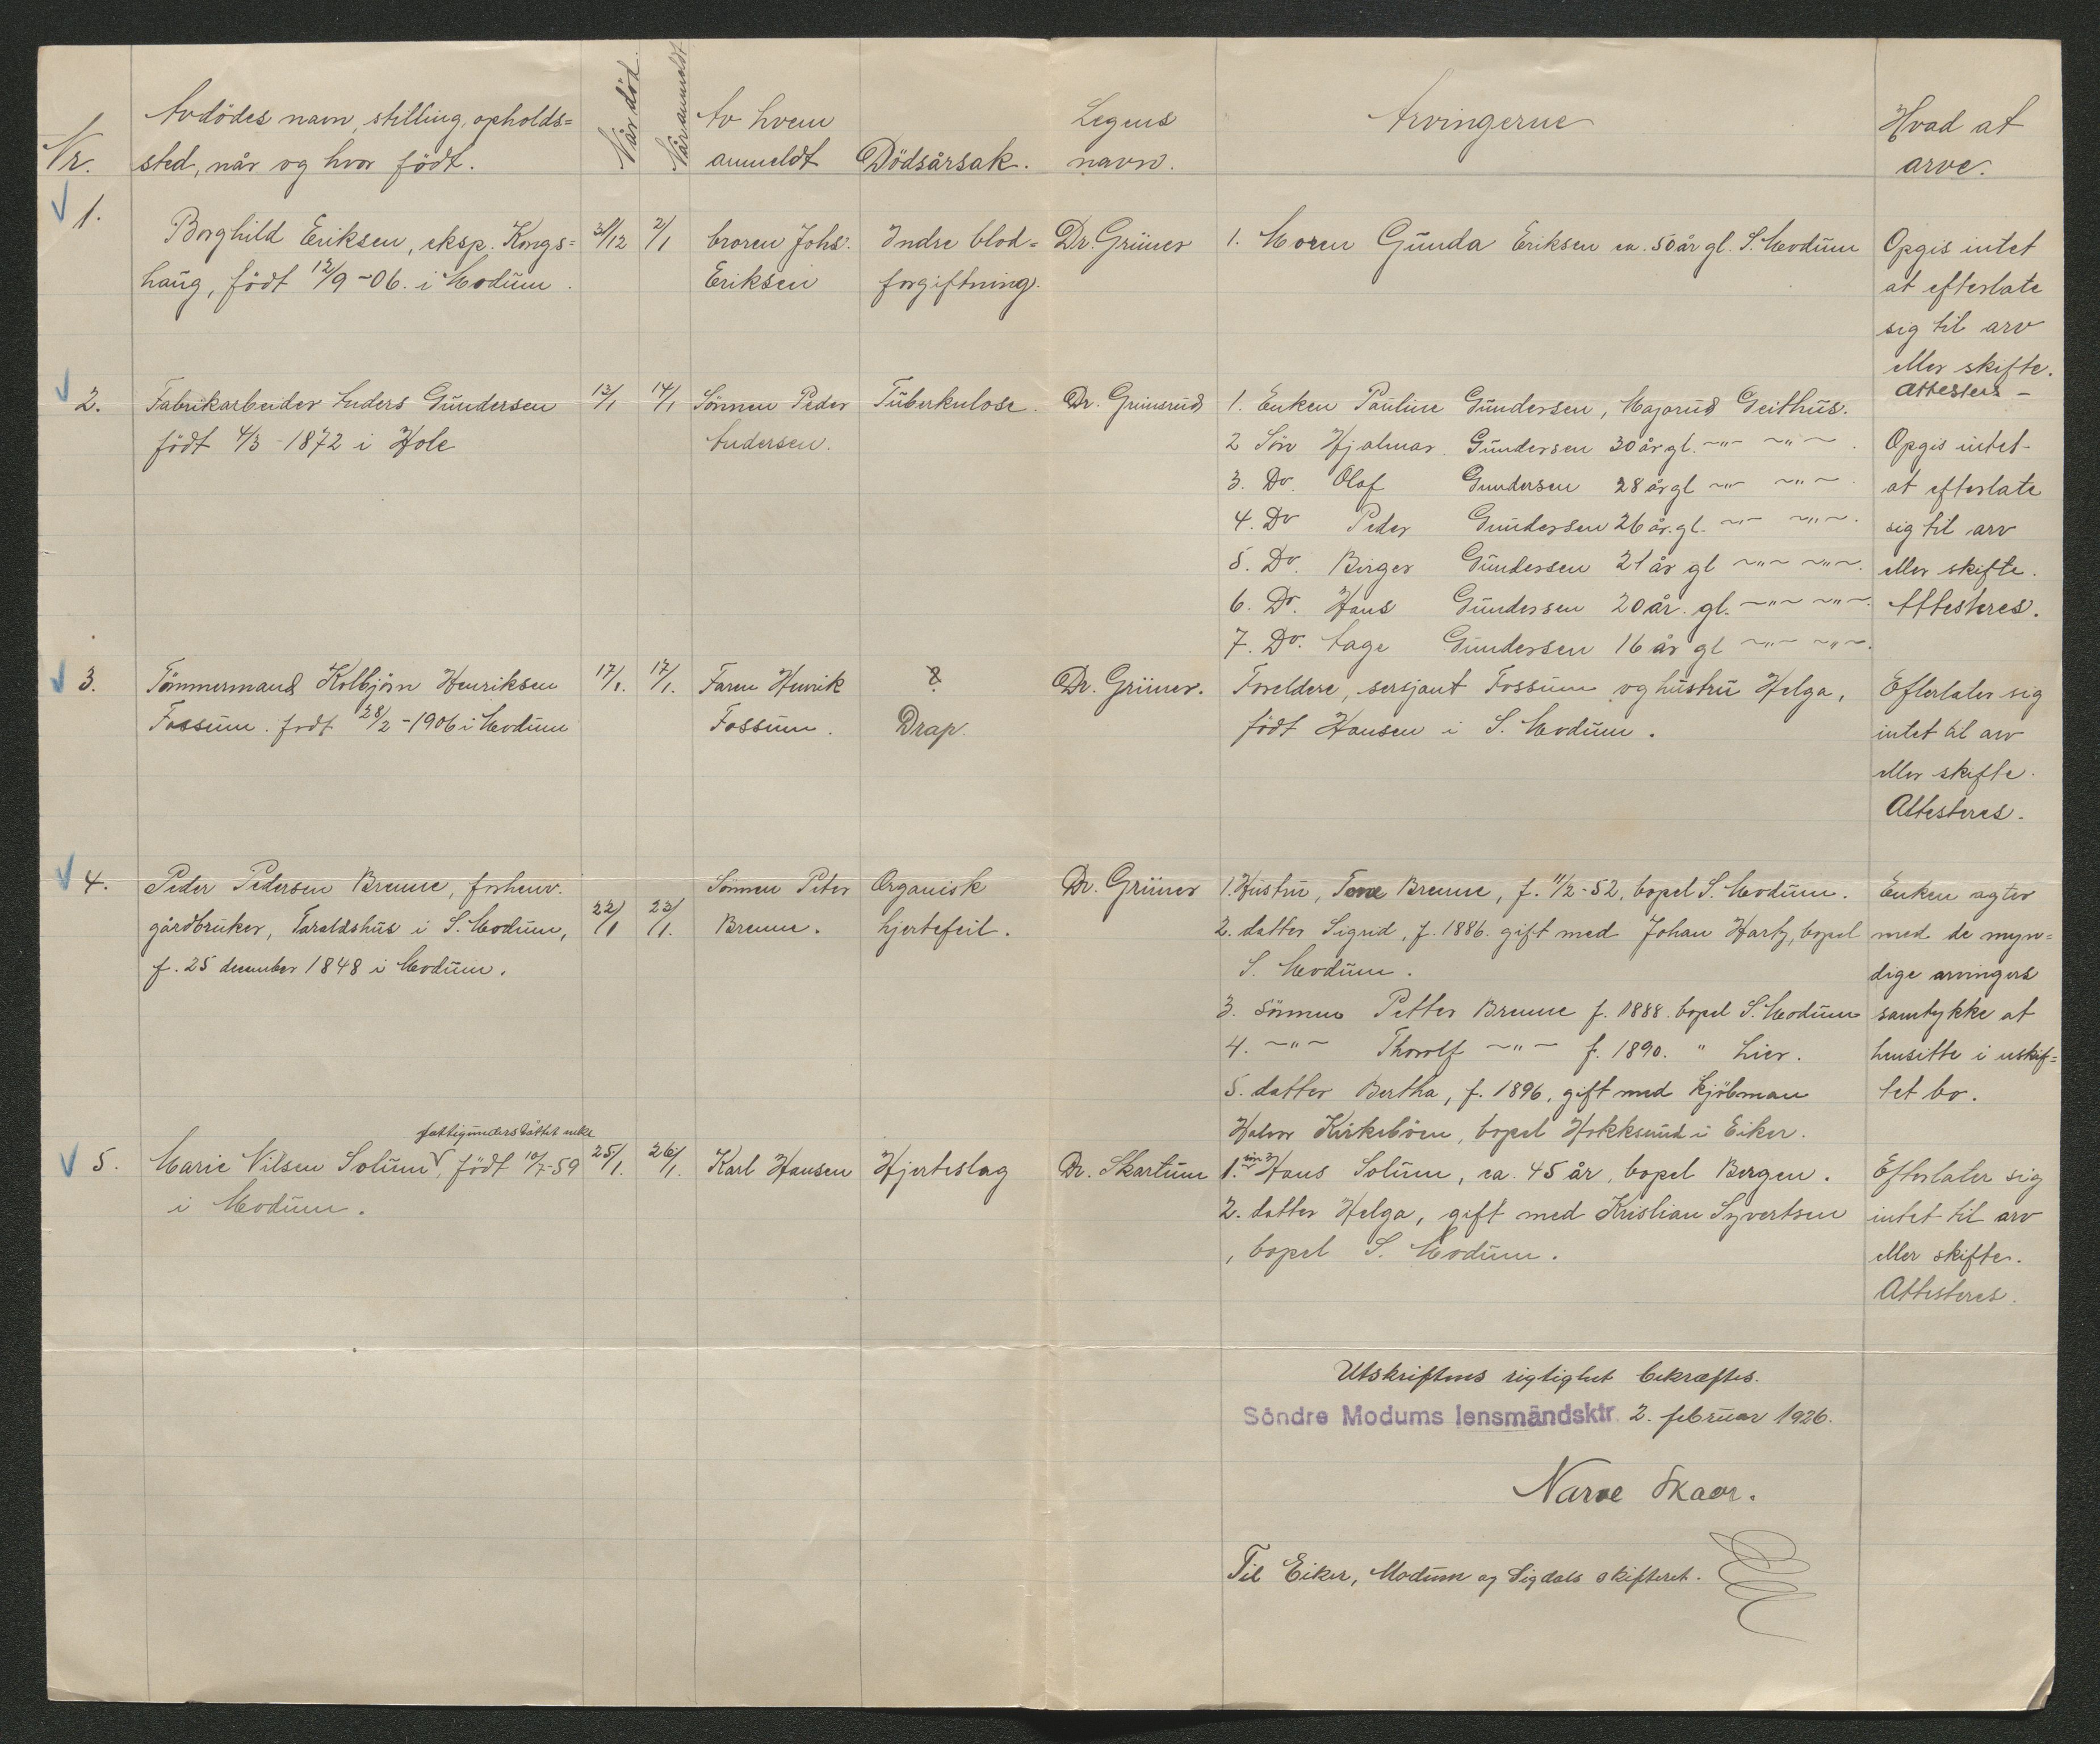 Nr.
Avdödes navn, stilling, opholds=
sted, når og hvor födt.
Når död.
Når anmeldt
Av hvem
anmeldt
Dödsårsak.
Legens
navn.
Arvingerne
Hvad at
arve.
1.
Borghild Eriksen, eksp. Kongs=
haug, födt 12/9-06. i Modum.
31/12
2/1
broren Johs.
Eriksen
Indre blod=
forgiftning.
Dr. Grüner
1. Moren Gunda Eriksen ca. 50 år gl. S. Modum
Opgis intet
at efterlate
sig til arv
eller skifte.
Attesteres -
2.
Fabrikarbeider Anders Gundersen
födt 4/3-1872 i Hole
13/1
14/1
Sönnen Peder
Andersen.
Tuberkulose.
Dr. Grimsrud
1. Enken Pauline Gundersen, Majorud Geithus.
2 Sön Hjalmar Gundersen 30 år gl. -"- -"-.
3. Do. Olaf Gundersen 28 år gl -"- -"-.
4. Do Peder Gundersen 26 år. gl. -"- -"-.
5. Do. Birger Gundersen 21 år gl -"- -"-.
6. Do. Hans Gundersen 20 år. gl. -"- -"-.
7. Do. Aage Gundersen 16 år gl -"- -"-.
Opgis intet
at efterlate
sig til arv
eller skifte.
Attesteres.
3.
Tömmermand Kolbjörn Henriksen
Fossum. födt 28/2-1906 i Modum
17/1.
17/1.
Faren Henrik
Fossum.
?
Drap.
Dr. Grüner.
Foreldere, sersjant Fossum og hustru Helga,
födt Hansen i S. Modum.
Efterlater sig
intet til arv
eller skifte.
Attesteres.
4.
Peder Pedersen Brenne, forhenv.
gårdbruker, Taraldshus i S. Modum,
f. 25 december 1848 i Modum.
22/1
23/1.
Sönnen Peter
Brenne.
Organisk
hjertefeil.
Dr. Grüner
1. Hustru, Tone Brenne, f. 11/2-52, bopel S. Modum.
2. datter Sigrid, f. 1886. gift med Johan Hartz, bopel
S. Modum.
3. sönnen Petter Brenne f. 1888. bopel S. Modum
4. -"- Thorolf -"- f. 1890. " Lier.
5. datter Bertha, f. 1896, gift med kjöbman
Halvor Kirkeböen, bopel Hokksund i Eiker.
Enken agter
med de myn=
dige arvingers
samtykke at
hensitte i uskif=
tet bo.
5.
fattigunderstöttet enke
Marie Nilsen Solum, födt 10/7-59
i Modum.
25/1.
26/1.
Karl Hansen
Hjerteslag
Dr. Skartum
1. sön Hans Solum, ca. 45 år, bopel Bergen.
2. datter Helga, gift med Kristian Syvertsen
, bopel S. Modum.
Efterlater sig
intet til arv
eller skifte.
Attesteres.
Utskriftens rigtighet bekræftes.
Söndre Modums lensmandsktr. 2. februar 1926.
Narve Skaar.
Til Eiker, Modum og Sigdals skifteret.